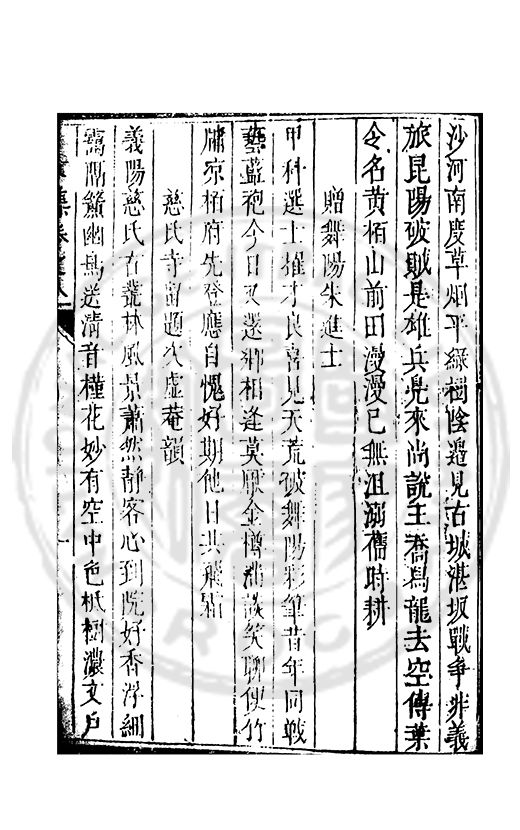 沙河南度草烟平綠樹陰邉見古城湛坂戰爭非義
旅昆陽破賊是雄兵鳧來尚說王喬舄龍去空傳葉
令名黄栢山前田漫漫已無沮溺儒時耕
贈舞陽朱進士
甲科選士擢才良喜見天荒破舞陽彩筆昔年同戰
藝藍袍今日又還鄉相逢莫厭金樽淡笑聊便竹
牖凉栢府先登應自愧好期他日共飛霜
慈氏寺留題次虚菴韻
義陽慈氏古叢林風景蕭然静客心到院好香浮細
靄隔簷幽鳥送清音檀花妙有空中色柢樹濃交戶